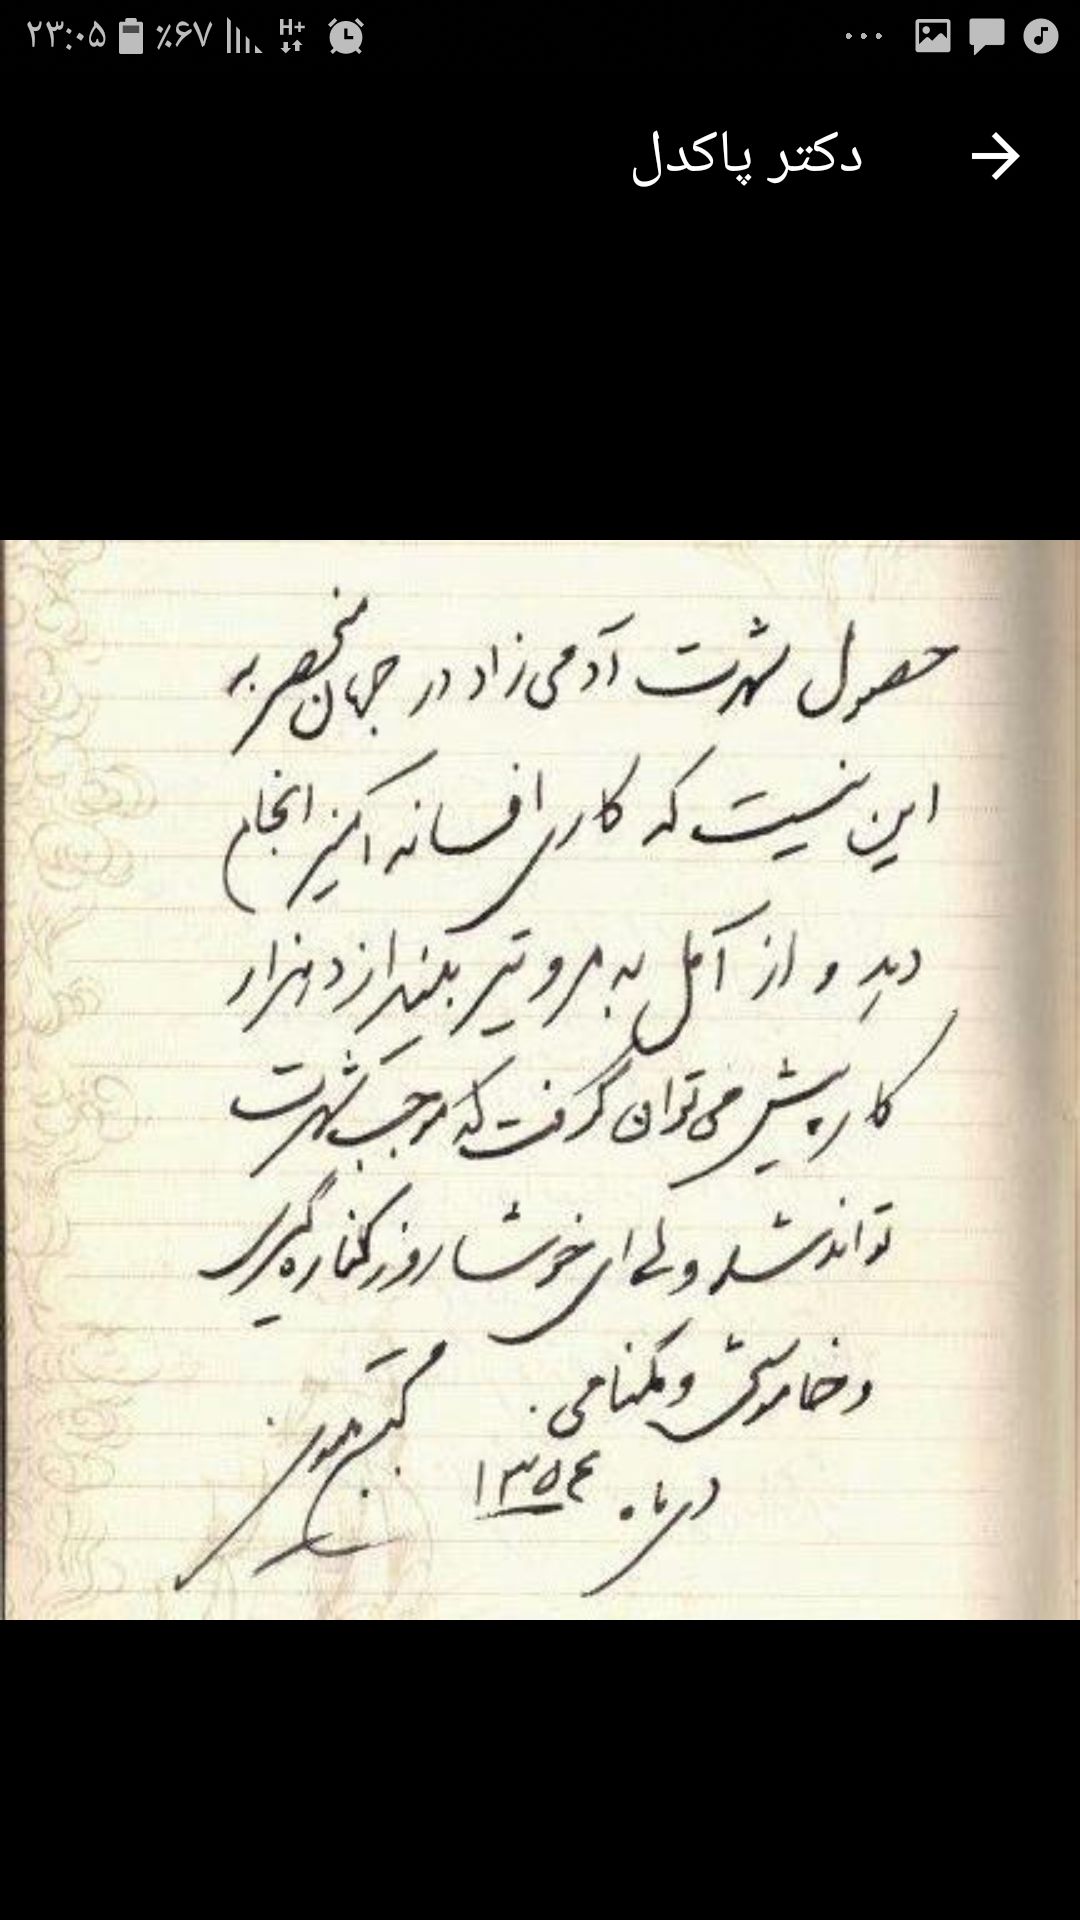 ۲۳:۰۵ ٪۶۷ H+
دکتر پاکدل
حصول شهرت آدمی‌زاد در جهان منحصر به
این نیست که کاری افسانه انگیز انجام
دهد و از آمل به مرو تیر بکند از ده هزار
کار پیش می‌توان گرفت که موجب شهرت
تواند شد ولی ای خوشا روز کناره‌گیری
و خاموشی و گمنامی.
دی ماه ۱۳۵۴
مجتبی مینوی